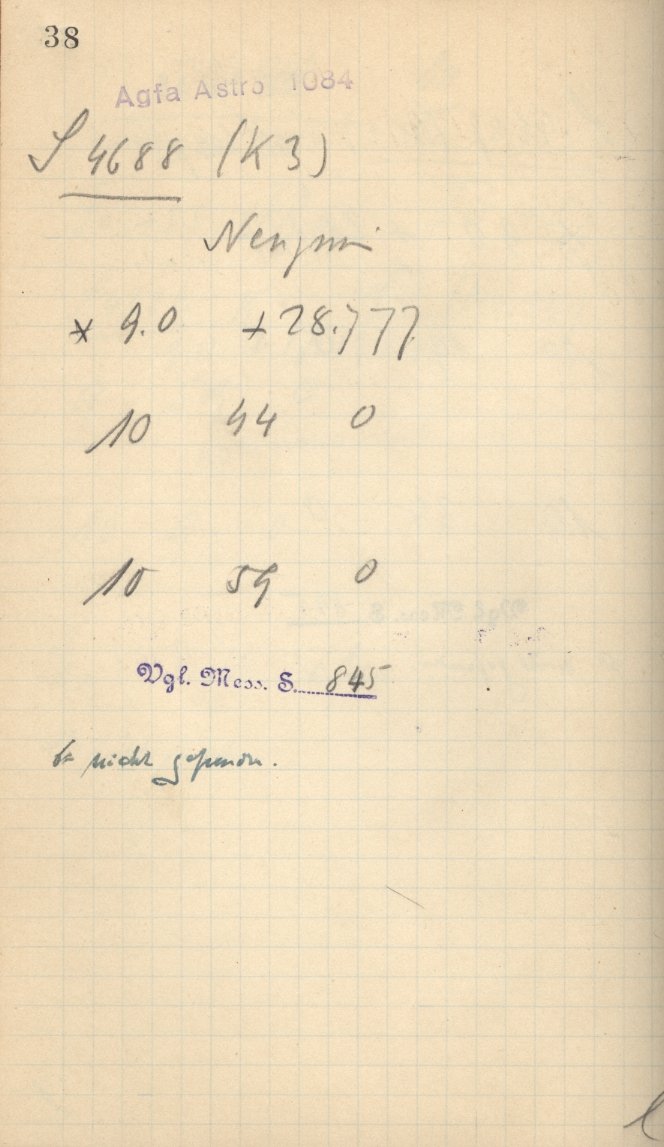 38
Agfa Astro 1084
S 4688 (K3)
Neujmin
* 9.0 +28.777
10 44 0
10 59 0
Vgl. Mess. S. 845
nicht gefunden.